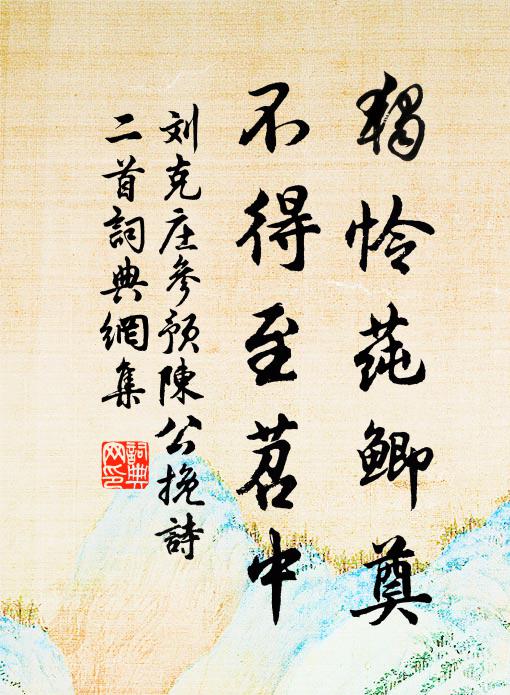 独怜莼鲫奠
不得至苕中
刘克庄參预陳公挽詩
二首詞典網集
詞典
网印